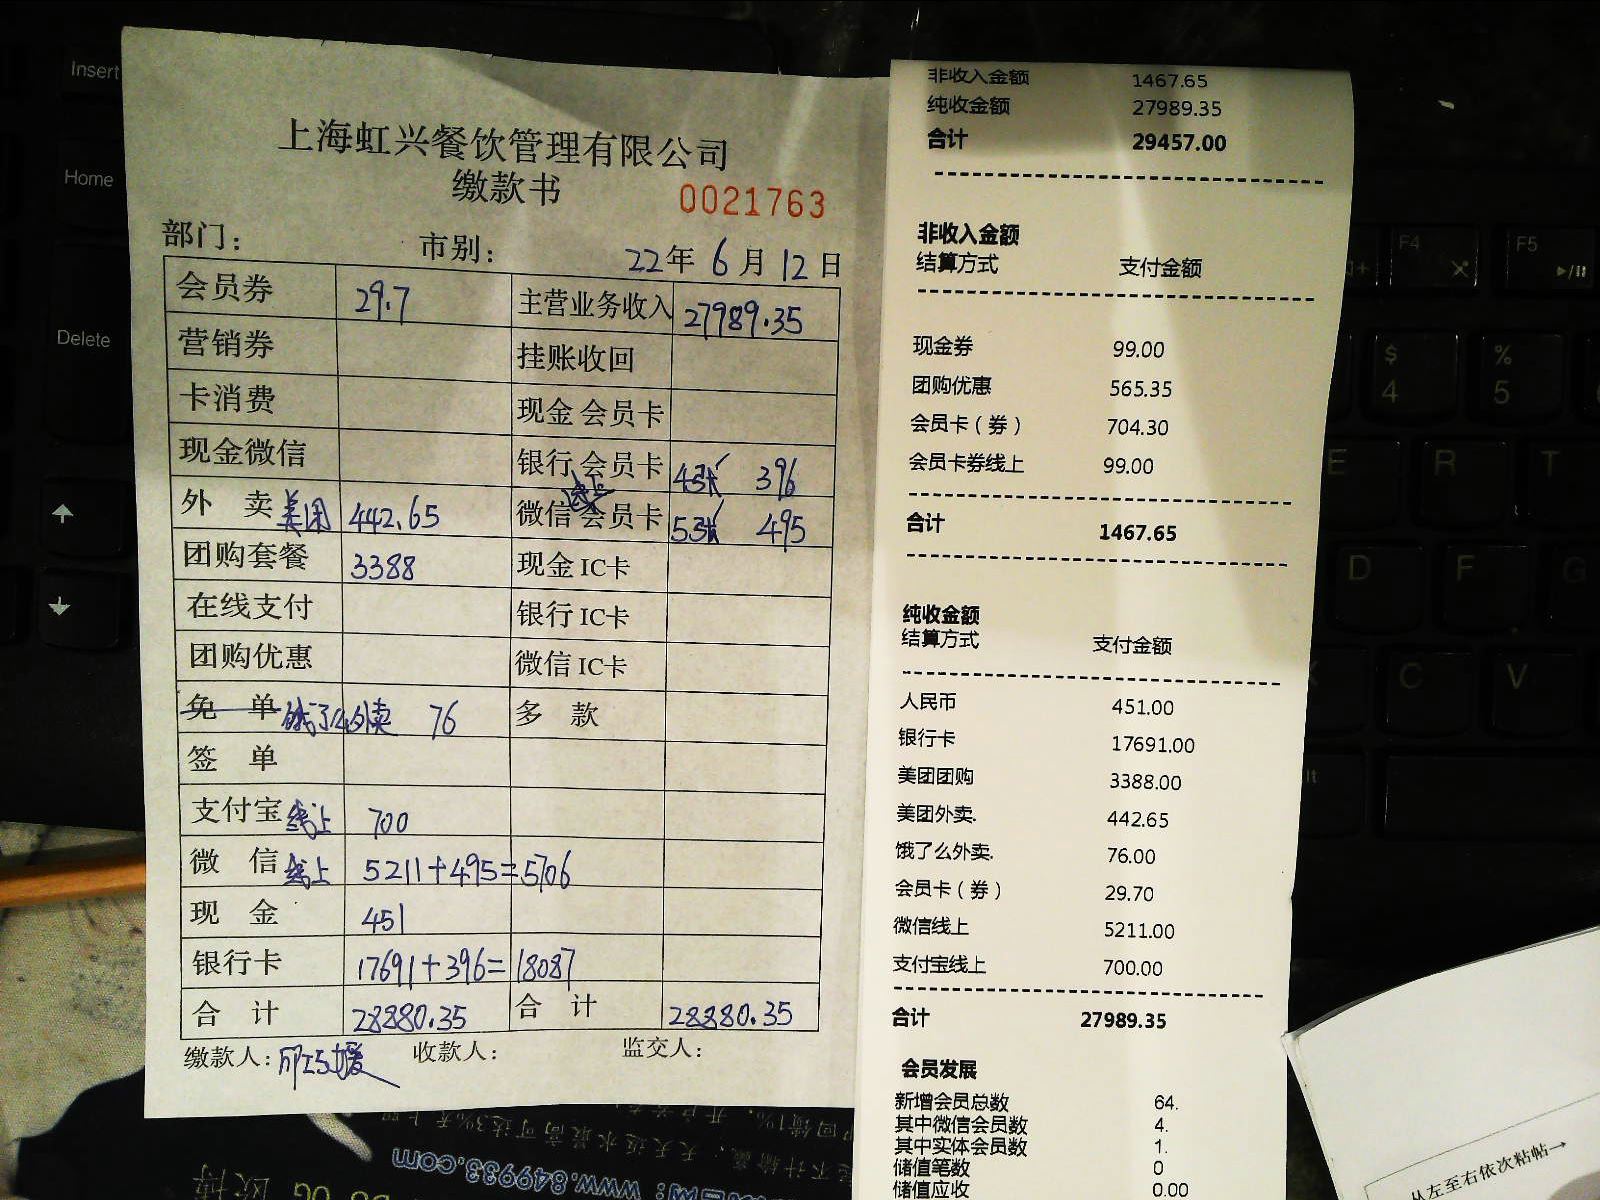 上海虹兴餐饮管理有限公司
缴款书 0021763
部门： 市别： 22年 6月 12日
会员券 29.7 主营业务收入 27989.35
营销券 挂账收回
卡消费 现金 会员卡
现金微信 银行 会员卡 4张 396
外 卖 美团 442.65 微信 会员卡 5张 495
团购套餐 3388 现金 IC卡
在线支付 银行 IC卡
团购优惠 微信 IC卡
免 单 饿了么外卖 76 多 款
签 单
支付宝 线上 700
微 信 线上 5211+495=5706
现 金 451
银行卡 17691+396=18087
合 计 28880.35 合 计 28880.35
缴款人： 收款人： 监交人：
非收入金额 1467.65
纯收金额 27989.35
合计 29457.00
非收入金额
结算方式 支付金额
现金券 99.00
团购优惠 565.35
会员卡（券） 704.30
会员卡券线上 99.00
合计 1467.65
纯收金额
结算方式 支付金额
人民币 451.00
银行卡 17691.00
美团团购 3388.00
美团外卖. 442.65
饿了么外卖. 76.00
会员卡（券） 29.70
微信线上 5211.00
支付宝线上 700.00
合计 27989.35
会员发展
新增会员总数 64.
其中微信会员数 4.
其中实体会员数 1.
储值笔数 0
储值应收 0.00
Insert
Home
Delete
F4
F5
$
4
%
5
E
R
T
D
F
G
C
V
www.849933.com
从左至右依次粘帖→